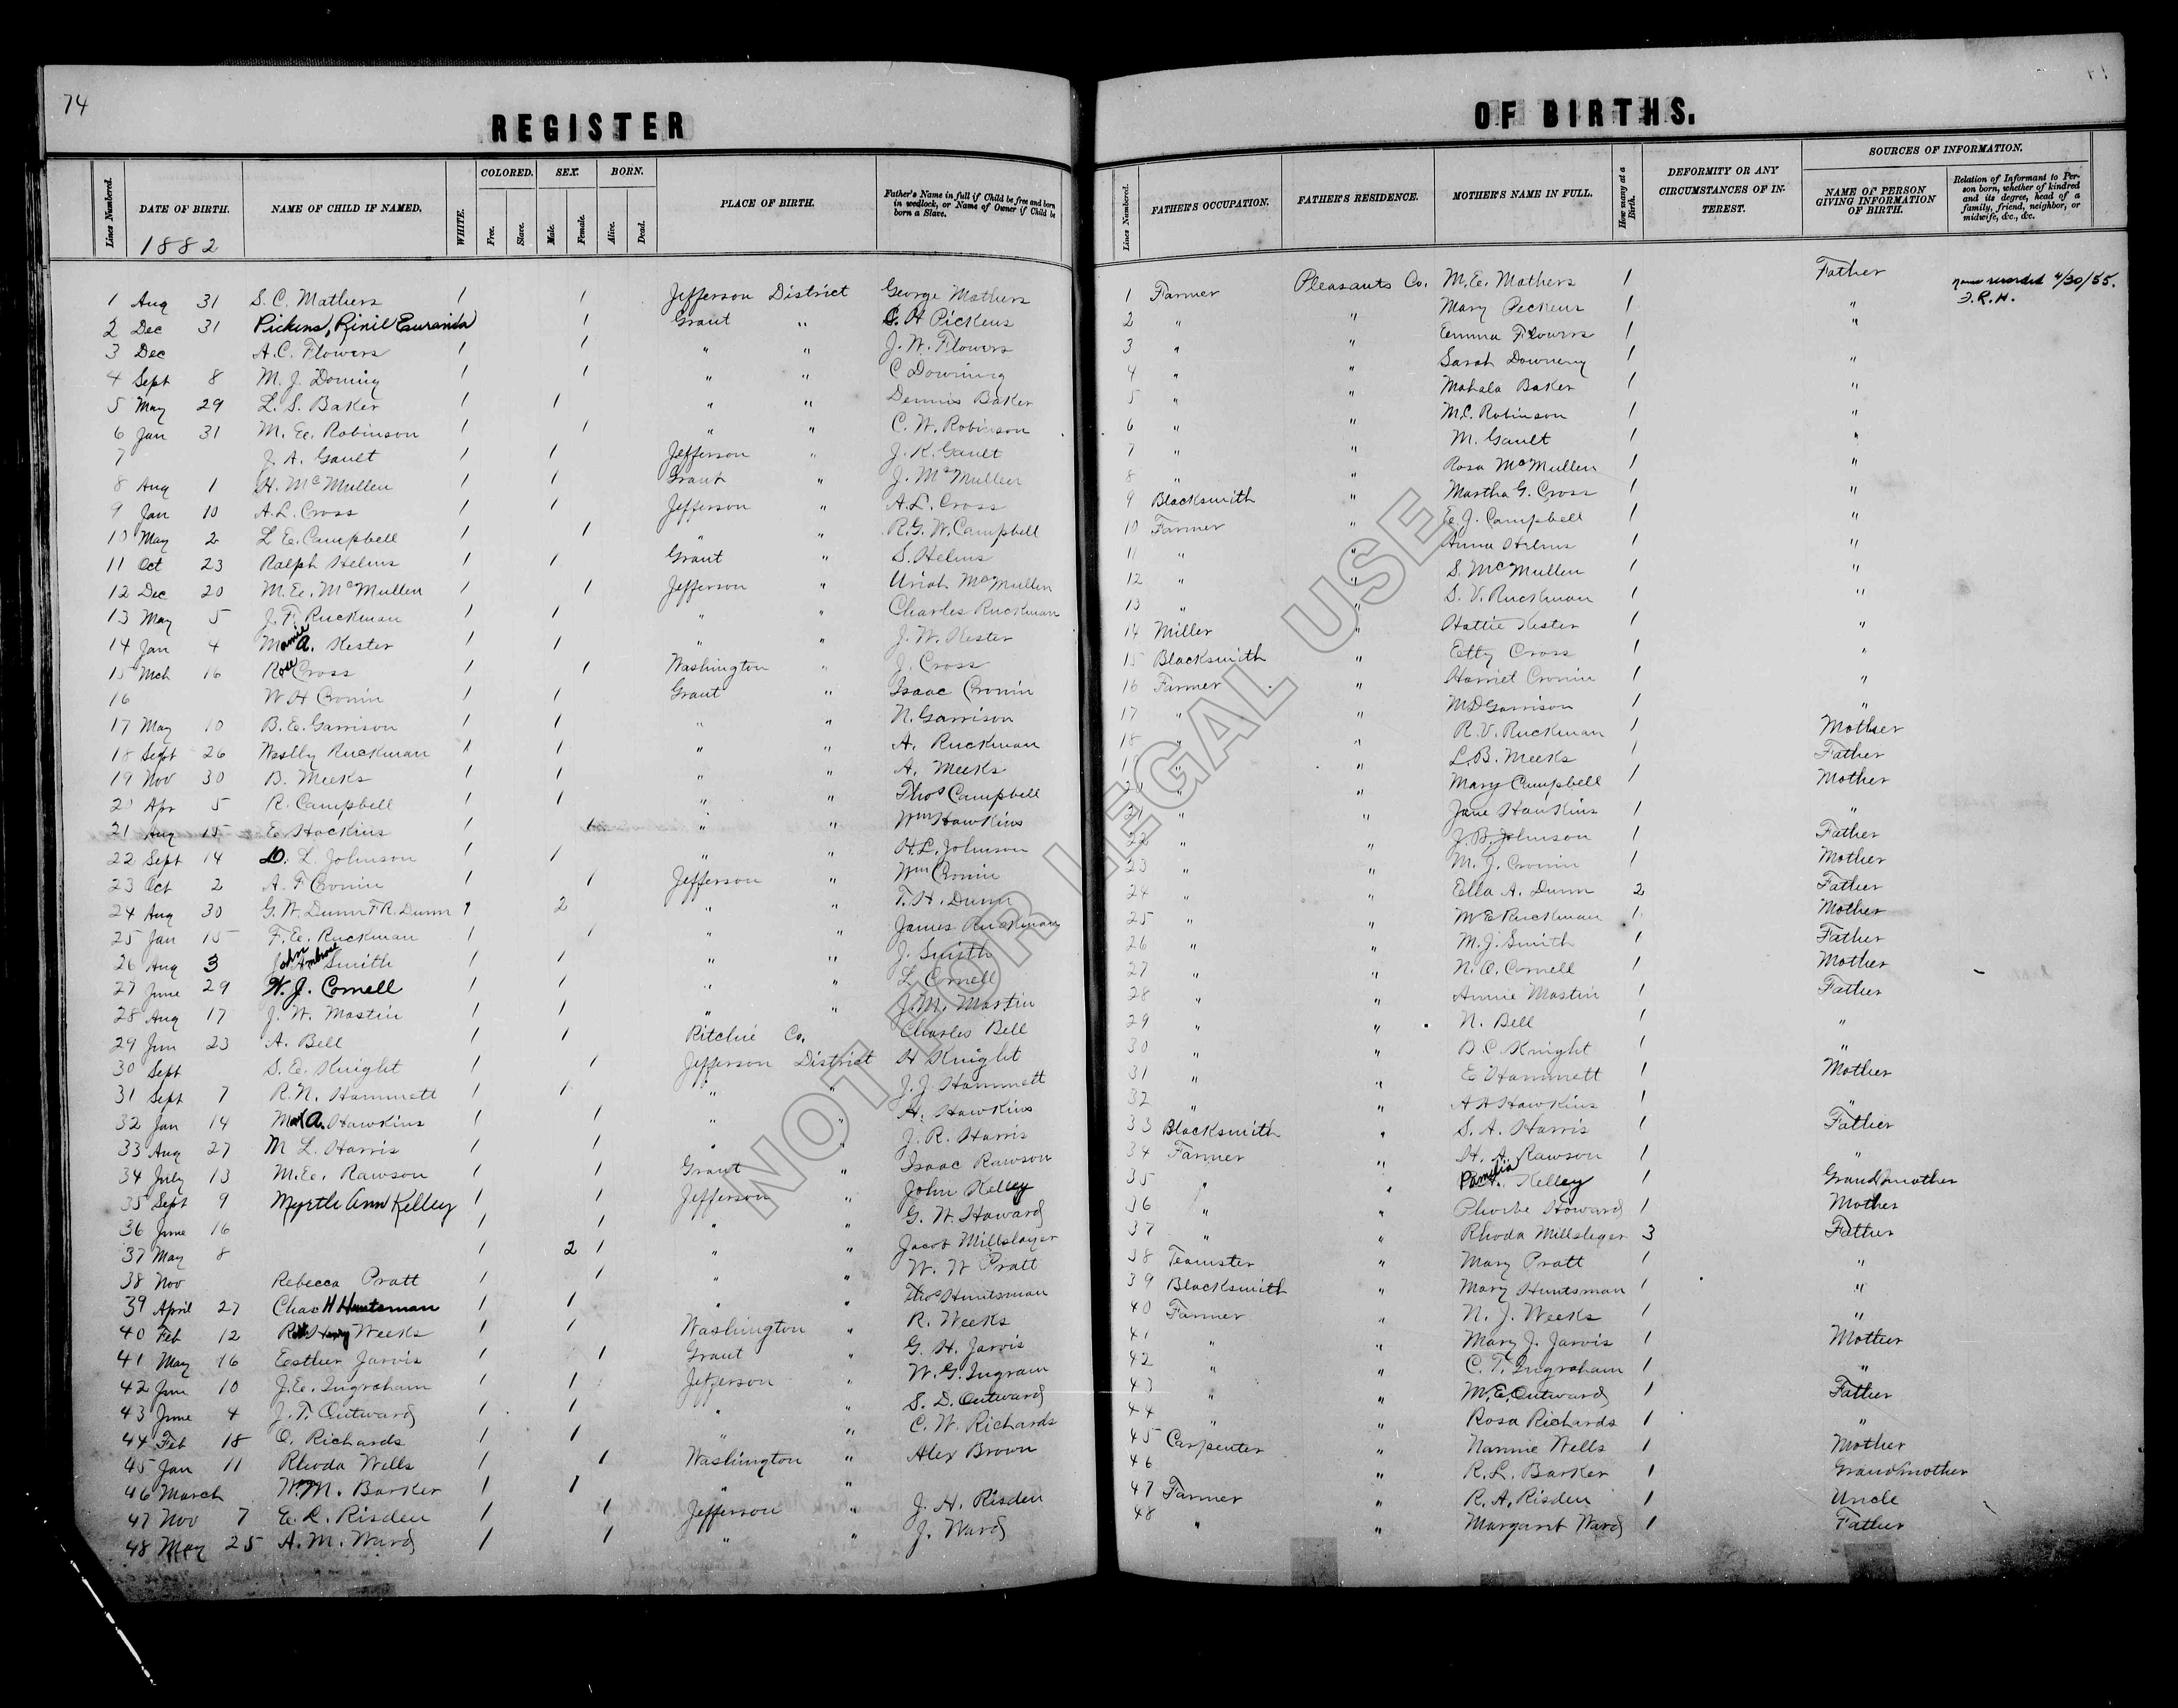 74
REGISTER OF BIRTHS.
Lines Numbered. DATE OF BIRTH. NAME OF CHILD IF NAMED. WHITE. COLORED. Free. Slave. SEX. Male. Female. BORN. Alive. Dead. PLACE OF BIRTH. Father's Name in full if Child be free and born in wedlock, or Name of Owner if Child be born a Slave. Lines Numbered. FATHER'S OCCUPATION. FATHER'S RESIDENCE. MOTHER'S NAME IN FULL. How many at a Birth. DEFORMITY OR ANY CIRCUMSTANCES OF INTEREST. SOURCES OF INFORMATION. NAME OF PERSON GIVING INFORMATION OF BIRTH. Relation of Informant to Person born, whether of kindred and its degree, head of a family, friend, neighbor, or midwife, &c., &c.
1882
1 Aug 31 S. C. Mathers 1 1 Jefferson District George Mathers 1 Farmer Pleasants Co. M. E. Mathers 1 Father
name recorded 4/30/55.
2 Dec 31 Pickens, 1 1 Grant " H Pickens 2 " " Mary Pickens 1 "
3 Dec A. C. Flowers 1 1 " " J. W. Flowers 3 " " Emma Flowers 1 "
4 Sept 8 M. J. Doming 1 1 " " C Downing 4 " " Sarah Downing 1 "
5 May 29 L. S. Baker 1 1 " " Dennis Baker 5 " " Mahala Baker 1 "
6 Jan 31 M. E. Robinson 1 1 " " C. W. Robinson 6 " " M. C. Robinson 1 "
7 J. A. Gault 1 1 Jefferson " J. K. Gault 7 " " M. Gault 1 "
8 Aug 1 H. McMullen 1 1 Grant " J. McMullen 8 " " Rosa McMullen 1 "
9 Jan 10 A. L. Cross 1 1 Jefferson " A. L. Cross 9 Blacksmith " Martha G. Cross 1 "
10 May 2 L E. Campbell 1 1 " " R. G. W. Campbell 10 Farmer " E. J. Campbell 1 "
11 Oct 23 Ralph Helms 1 1 Grant " S. Helms 11 " " Anna Helms 1 "
12 Dec 20 M. E. McMullen 1 1 Jefferson " Uriah McMullen 12 " " S. McMullen 1 "
13 May 5 J. F. Ruckman 1 1 " " Charles Ruckman 13 " " S. V. Ruckman 1 "
14 Jan 4 A. Kester 1 1 " " J. W. Kester 14 Miller " Hattie Kester 1 "
15 Mch 16 Rose Cross 1 1 Washington " J. Cross 15 Blacksmith " Etty Cross 1 "
16 W H Cronin 1 1 Grant " Isaac Cronin 16 Farmer " Harriet Cronin 1 "
17 May 10 B. E. Garrison 1 1 " " N. Garrison 17 " " M D Garrison 1 "
18 Sept 26 Westly Ruckman 1 1 " " A. Ruckman 18 " " R. V. Ruckman 1 Mother
19 Nov 30 B. Meeks 1 1 " " A. Meeks 19 " " L. B. Meeks 1 Father
20 Apr 5 R. Campbell 1 1 " " Thos Campbell 20 " " Mary Campbell 1 Mother
21 Aug 15 E Hockins 1 1 " " Wm Hawkins 21 " " Jane Hawkins 1 "
22 Sept 14 L. Johnson 1 1 " " H. L. Johnson 22 " " J. B. Johnson 1 Father
23 Oct 2 A. F Cronin 1 1 Jefferson " Wm Cronin 23 " " M. J. Cronin 1 Mother
24 Aug 30 G. W. Dunn F R. Dunn 1 2 " " T. H. Dunn 24 " " Ella A. Dunn 2 Father
25 Jan 15 F. E. Ruckman 1 1 " " James Ruckman 25 " " M E Ruckman 1 Mother
26 Aug 3 John Ambrose Smith 1 1 " " J. Smith 26 " " M. J. Smith 1 Father
27 June 29 W. J. Cornell 1 1 " " L Cornell 27 " " N. O. Cornell 1 Mother
28 Aug 17 J. W. Mastin 1 1 " " J. M. Mastin 28 " " Annie Mastin 1 Father
29 Jun 23 A. Bell 1 1 Ritchie Co. Charles Bell 29 " " N. Bell 1 "
30 Sept S. E. Knight 1 1 Jefferson District H Knight 30 " " B. C. Knight 1 "
31 Sept 7 R. N. Hammett 1 1 " " J. J. Hammett 31 " " E Hammett 1 Mother
32 Jan 14 A. Hawkins 1 1 " " H. Hawkins 32 " " A A Hawkins 1 "
33 Aug 27 M L. Harris 1 1 " " J. R. Harris 33 Blacksmith " S. A. Harris 1 Father
34 July 13 M. E. Rawson 1 1 Grant " Isaac Rawson 34 Farmer " H. A. Rawson 1 "
35 Sept 9 Myrtle Ann Kelley 1 1 Jefferson " John Kelley 35 " " Kelley 1 Grandmother
36 June 16 1 1 " " G. W. Howard 36 " " Phoebe Howard 1 Mother
37 May 8 1 2 1 " " Jacob Millslager 37 " " Rhoda Millslager 3 Father
38 Nov Rebecca Pratt 1 1 " " W. W Pratt 38 Teamster " Mary Pratt 1 "
39 April 27 Chas H Huntsman 1 1 " " Thos Huntsman 39 Blacksmith " Mary Huntsman 1 "
40 Feb 12 Weeks 1 1 Washington " R. Weeks 40 Farmer " N. J. Weeks 1 "
41 May 16 Eesther Jarvis 1 1 Grant " G. H. Jarvis 41 " " Mary J. Jarvis 1 Mother
42 Jun 10 J. E. Ingraham 1 1 Jefferson " W. G. Ingram 42 " " C. T. Ingraham 1 "
43 June 4 J. T. Outward 1 1 " " S. D. Outward 43 " " M. E. Outward 1 Father
44 Feb 18 O. Richards 1 1 " " C. W. Richards 44 " " Rosa Richards 1 "
45 Jan 11 Rhoda Wells 1 1 Washington " Alex Brown 45 Carpenter " Nannie Wells 1 Mother
46 March W. M. Barker 1 1 " " 46 " R. L. Barker 1 Grandmother
47 Nov 7 E. L. Risden 1 1 Jefferson " J. H. Risden 47 Farmer " R. A. Risden 1 Uncle
48 May 25 A. M. Ward 1 1 " " J. Ward 48 " " Margaret Ward 1 Father
NOT FOR LEGAL USE